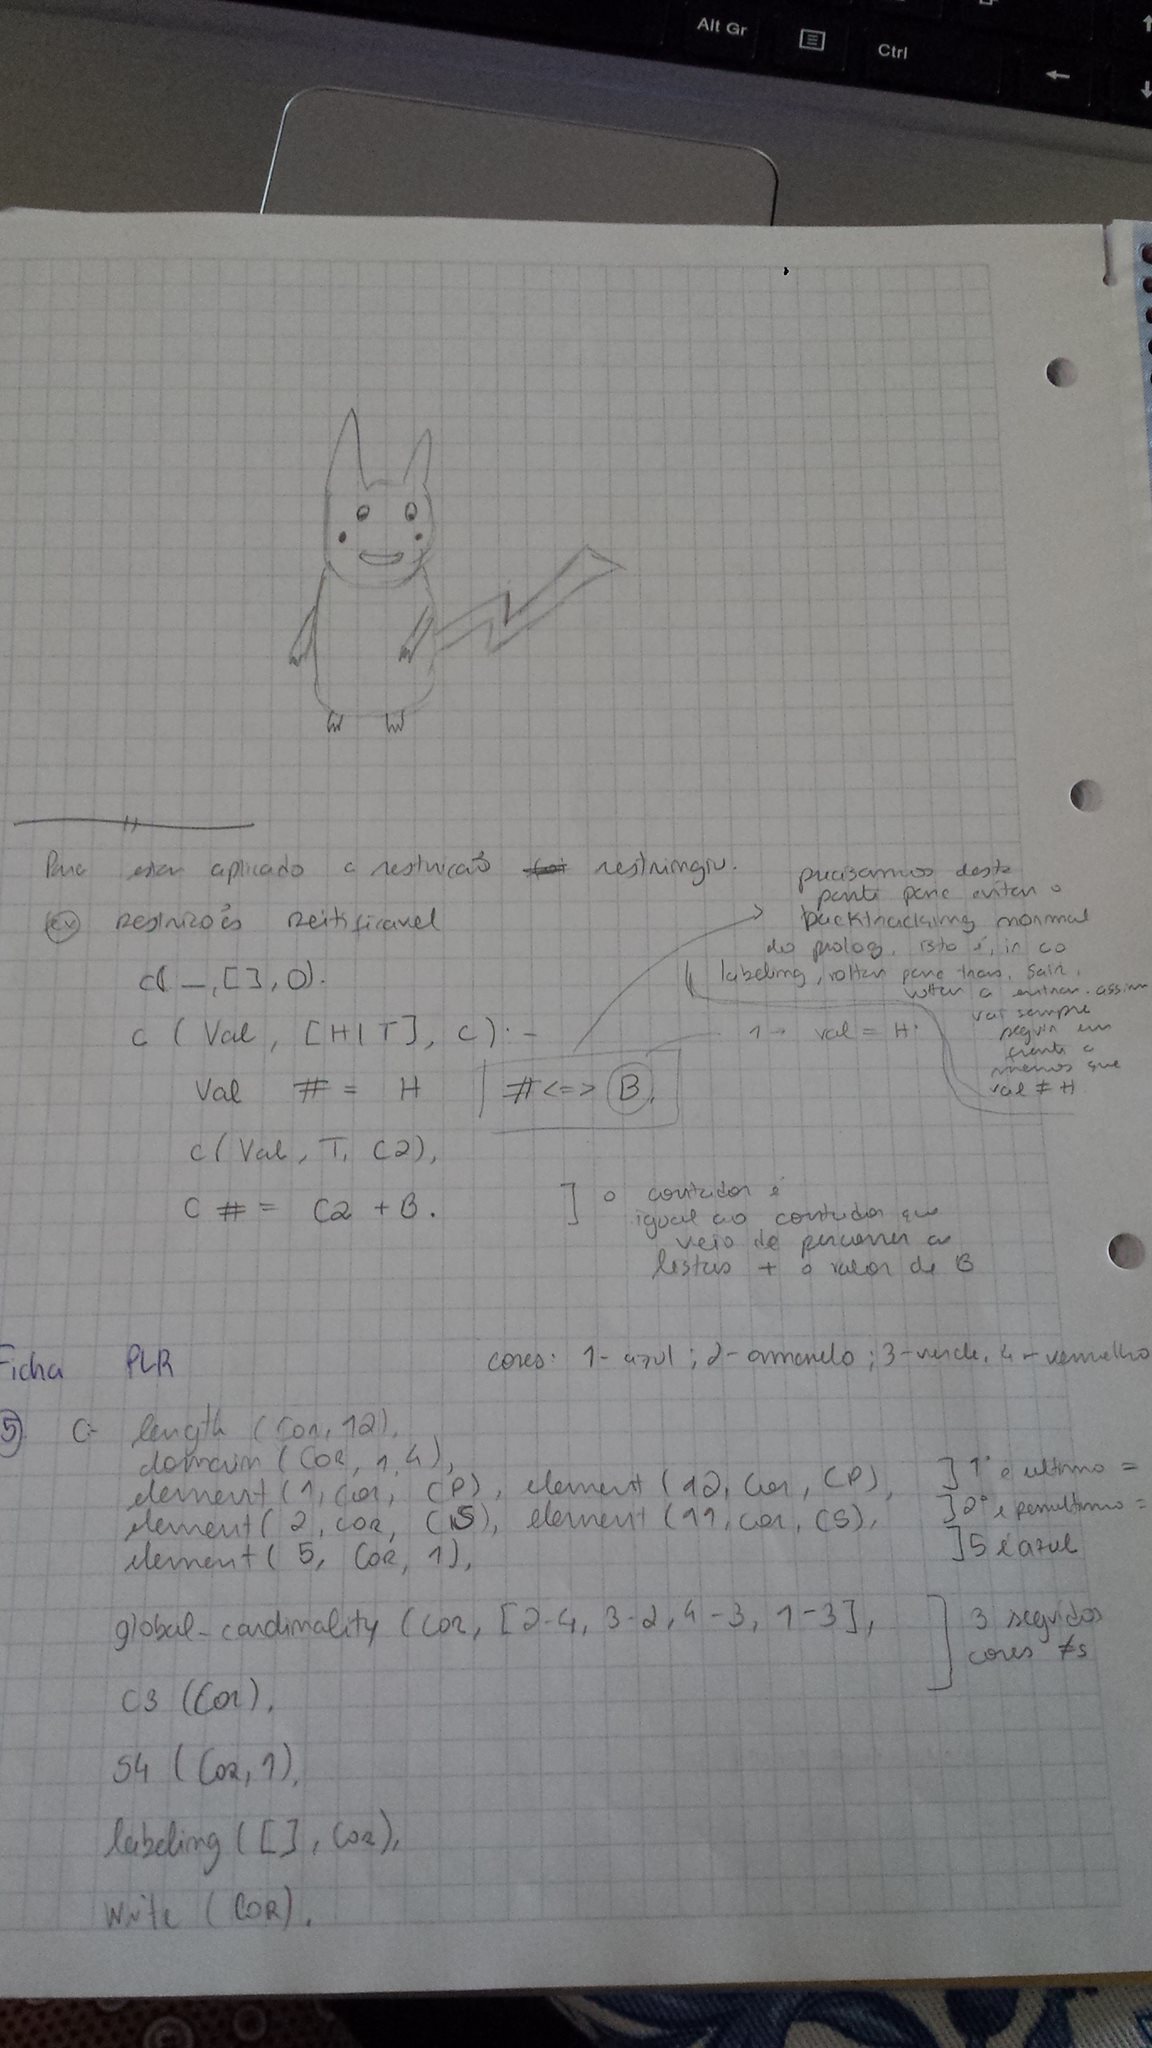 Alt Gr
Ctrl
Para estar aplicado a restrição restringiu.
ex restrições reitificavel
c(_,[],0).
c (Val, [H|T], C):-
Val #= H #<=> B,
c(Val, T, C2),
C #= C2 + B.
precisamos deste
parte para evitar o
backtracking normal
do prolog, isto é, ir ao
labeling, voltar para tras, sair,
voltar a entrar. assim
vai sempre
seguir em
frente a
menos que
val ≠ H
1→ val = H
] o contador é
igual ao contador que
veio de percorrer as
listas + o valor de B
Ficha PLR
cores: 1- azul; 2-amarelo; 3-verde, 4-vermelho
5 C- length (Cor, 12),
domain (Cor, 1, 4),
element (1, Cor, CP), element (12, Cor, CP), ] 1º e ultimo =
element (2, Cor, CS), element (11, Cor, CS), ] 2º e penultimo =
element (5, Cor, 1), ] 5 é azul
global-cardinality (Cor, [2-4, 3-2, 4-3, 1-3],
] 3 seguidos
cores ≠s
C3 (Cor),
S4 (Cor, 1),
labeling ([], Cor),
Write (Cor).